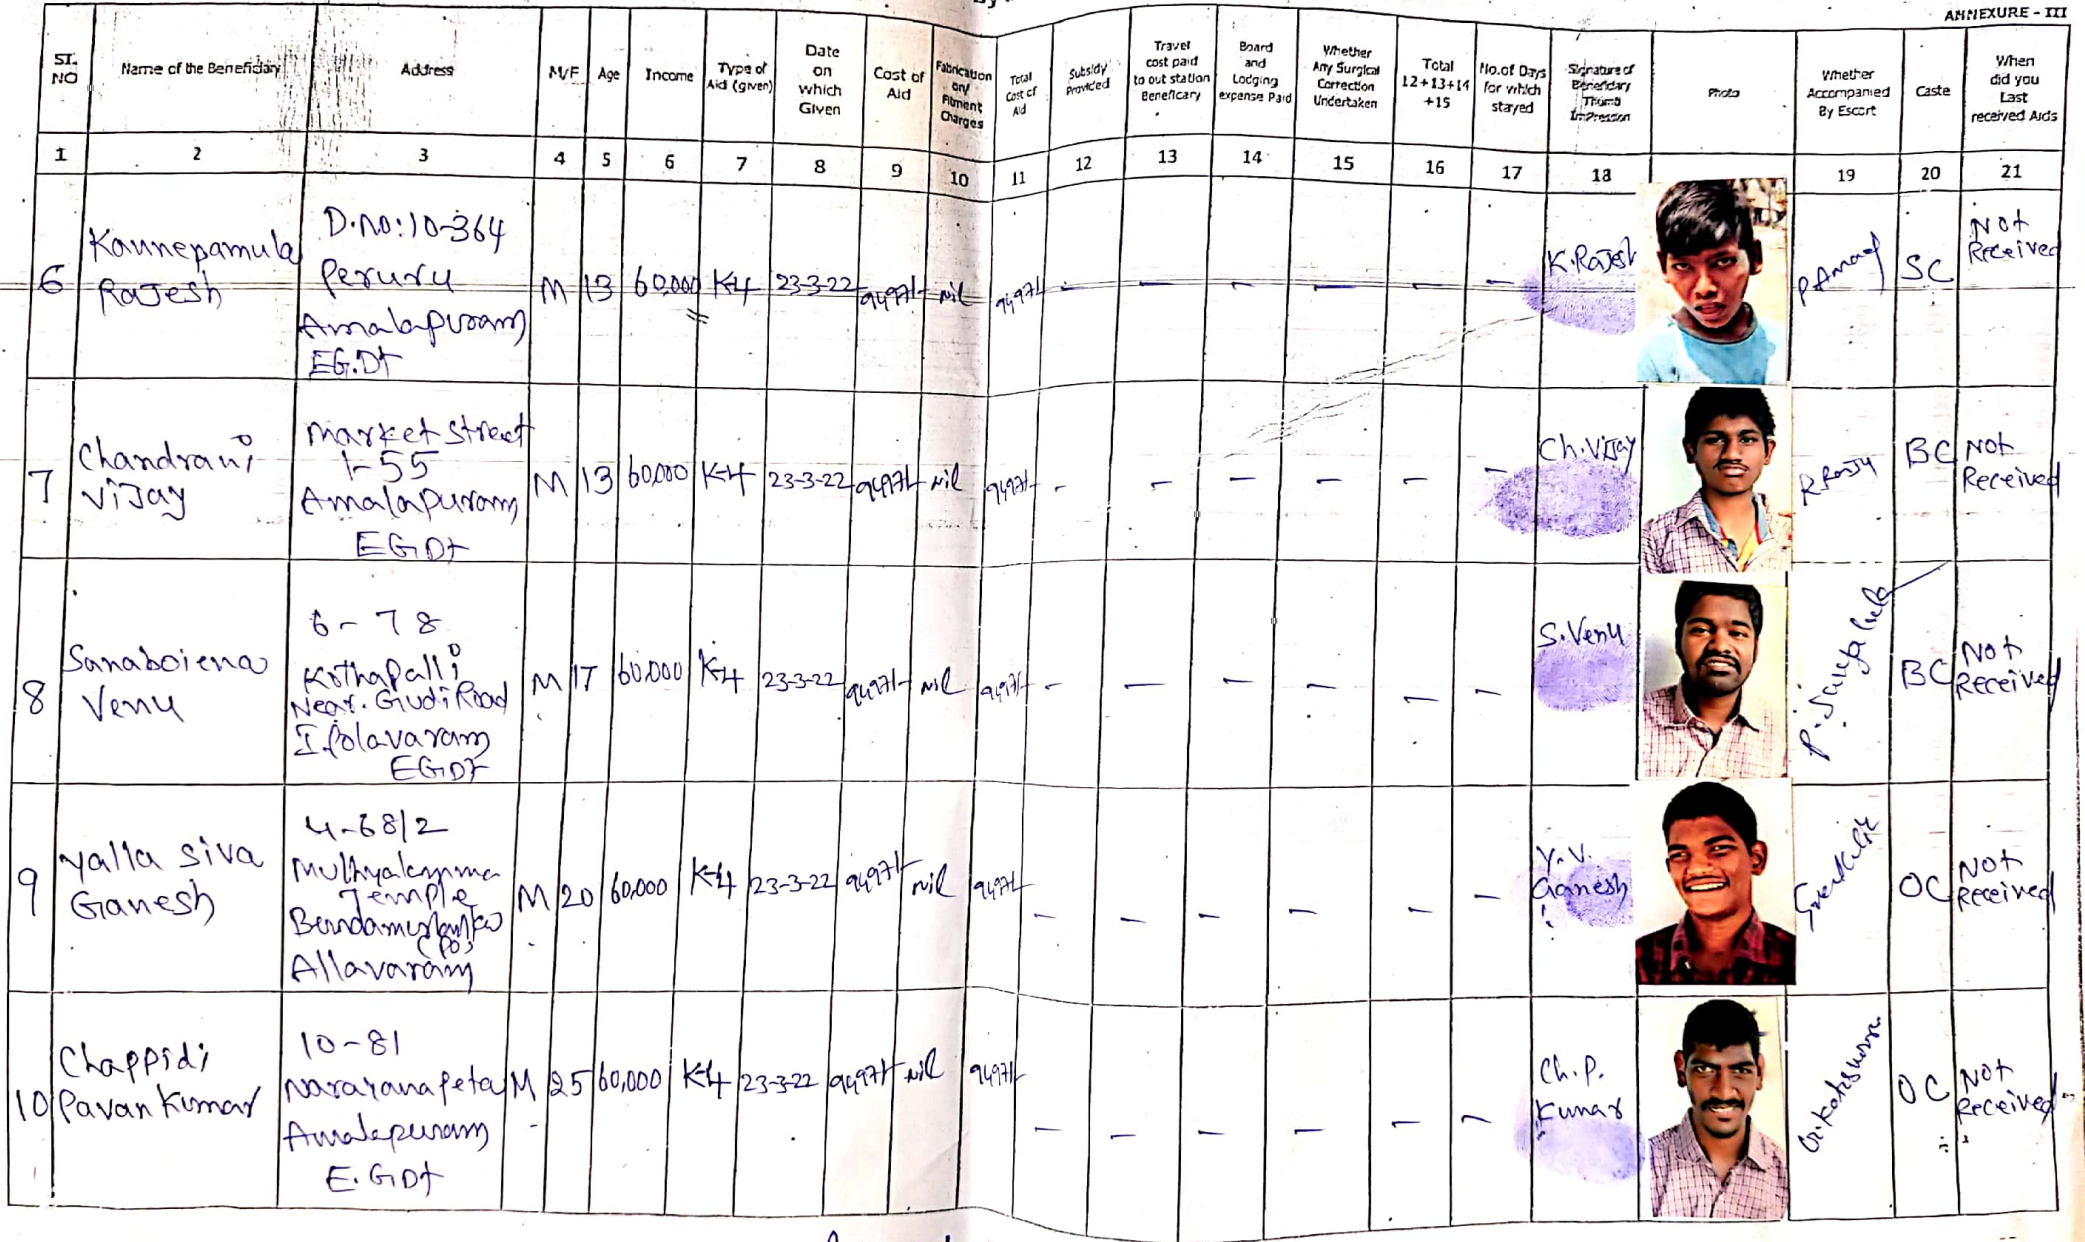 ANNEXURE - III
SI. NO
Name of the Beneficiary
Address
M/F
Age
Income
Type of Aid (given)
Date on which Given
Cost of Aid
Fabrication on/ Fitment Charges
Total Cost of Aid
Subsidy Provided
Travel cost paid to out station Beneficary
Board and Lodging expense Paid
Whether Any Surgical Correction Undertaken
Total 12+13+14 +15
No.of Days for which stayed
Signature of Beneficiary Thumb Impression
Photo
Whether Accompanied By Escort
Caste
When did you Last received Aids
1 2 3 4 5 6 7 8 9 10 11 12 13 14 15 16 17 18 19 20 21
6
Kaunepamula
Rajesh
D.no:10-364
Peruru
Amalapuram
EG.Dt
M 13 60,000 K-4 23-3-22 9497/- nil 9497/- - - - - - -
K.Rajesh
SC
Not
Received
7
Chandrani
Vijay
market street
1-55
Amalapuram
EG Dt
M 13 60,000 K-4 23-3-22 9497/- nil 9497/- - - - - - -
Ch.Vijay
R.Raju
BC
Not
Received
8
Sanaboiena
Venu
6-78
Kothapalli
Near. Gudi Road
I.Polavaram
EG Dt
M 17 60,000 K-4 23-3-22 9497/- nil 9497/- - - - - - -
S.Venu
BC
Not
Received
9
Yalla Siva
Ganesh
4-68/2
Muthyalamma
Temple
(PO)
Allavaram
M 20 60,000 K-4 23-3-22 9497/- nil 9497/- - - - - - -
Y.V.
Ganesh
OC
Not
Received
10
Chappidi
Pavan Kumar
10-81
Narayanapeta
Amalapuram
E.G Dt
M 25 60,000 K-4 23-3-22 9497/- nil 9497/- - - - - - -
Ch.P.
Kumar
OC
Not
Received